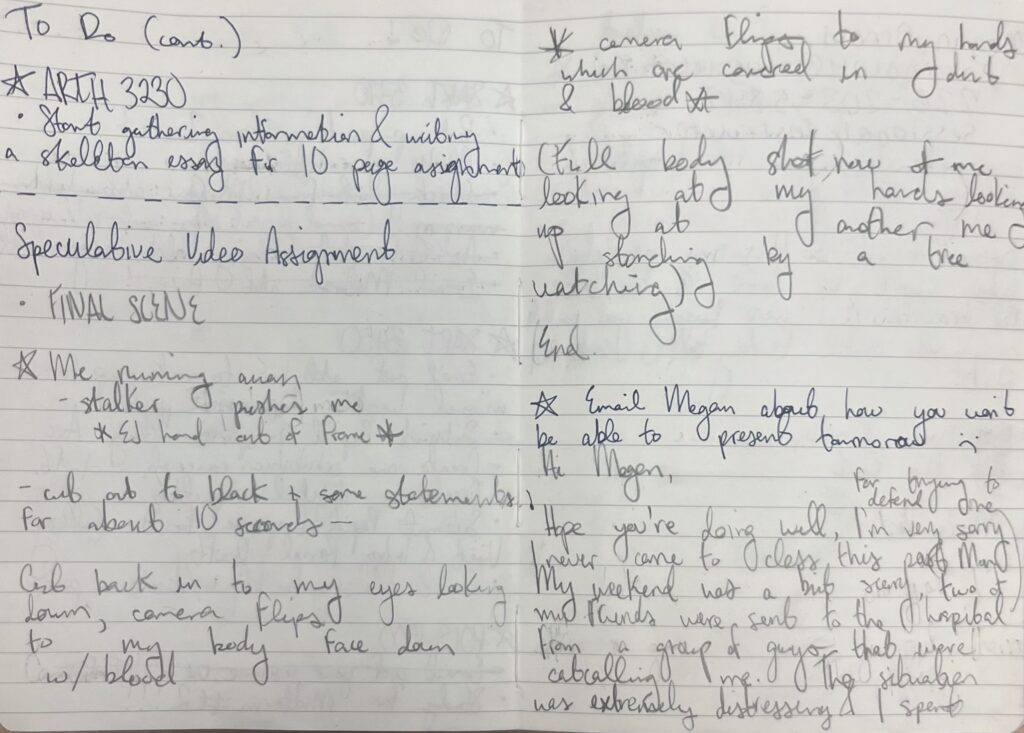 To Do (cont.)
☆ ARTH 3230
• Start gathering information & writing
a skeleton essay for 10 page assignment
Speculative Video Assignment
• FINAL SCENE
☆ Me running away
- stalker pushes me
* EJ hand out of frame *
- cut out to black + some statements
for about 10 seconds -
Cut back in to my eyes looking
down, camera flips
to my body face down
w/ blood
* camera flips to my hands
which are covered in dirt
& blood ☆
(Full body shot now of me
looking at my hands looking
up at another me
standing by a tree
watching)
End.
☆ Email Megan about how you won't
be able to present tomorrow
Hi Megan,
for trying to
defend me
Hope you're doing well, I'm very sorry
I never came to class this past Mon
My weekend was a bit scary, two of
my friends were sent to the hospital
from a group of guys that were
catcalling me. The situation
was extremely distressing & I spent